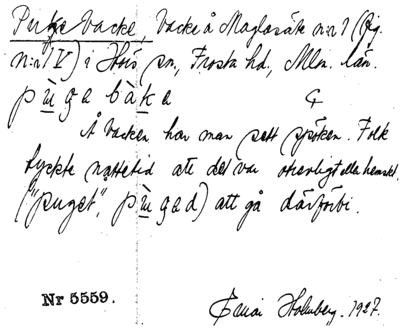 Puge backe, backe å Maglasäte n:r 1 (äg.
n:r 1 V) i Hörs sn., Frosta hd., Mlm. län.
pùge bàke
Å backen har man sett spöken. Folk
tyckte nattetid att det var otrevligt eller hemskt
("puget", pùged) att gå därförbi.
Nr 5559.
Holmberg. 1927.